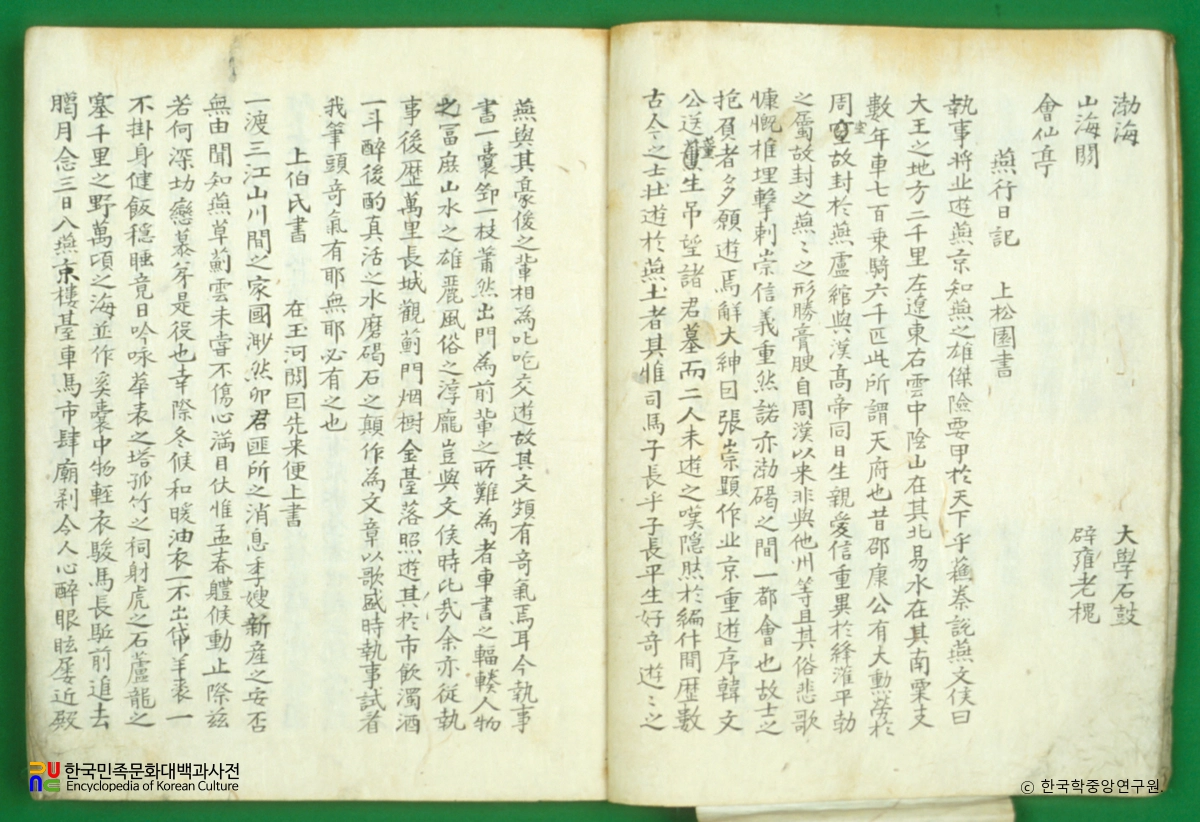 渤海 大學石鼓
山海關 辟雍老槐
會仙亭
燕行日記 上松園書
執事將北遊燕京知燕之雄傑險要甲於天下乎蘓秦說燕文侯曰
大王之地方二千里左遼東右雲中陰山在其北易水在其南粟支
數年車七百乘騎六千匹此所謂天府也昔邵康公有大勳勞於
周室故封於燕盧綰與漢高帝同日生親愛信重異於絳灌平勃
之屬故封之燕〻之形勝膏腴自周漢以來非與他州等且其俗悲歌
慷慨椎埋擊刺崇信義重然諾亦渤碣之間一都會也故士之
抱負者多願遊焉觧大紳曰張崇顯作北京重遊序韓文
公送董生吊望諸君墓而二人未遊之嘆隱然於編什間歷數
古今之士壯遊於燕土者其惟司馬子長乎子長平生好奇遊〻之
燕與其豪俊之輩相為叱咤交遊故其文頗有奇氣焉耳今執事
書一囊笻一枝蕭然出門為前輩之所難為者車書之輻輳人物
之富庶山水之雄麗風俗之淳龐豈與文侯時比哉余亦從執
事後歷萬里長城觀薊門烟樹金臺落照遊其於市飲濁酒
一斗醉後酌真活之水磨碣石之顛作為文章以歌盛時執事試看
我筆頭奇氣有耶無耶必有之也
上伯氏書 在玉河關回先来便上書
一渡三江山川間之家國渺然卯君匪所之消息李嫂新産之安否
無由聞知燕草薊雲未嘗不傷心滿目伏惟孟春軆候動止際玆
若何深切戀慕弟是役也幸際冬候和暖油衣一不出帒羊裘一
不掛身健飯穩睡竟日吟咏華表之塔孤竹之祠射虎之石蘆龍之
塞千里之野萬頃之海並作奚囊中物輕衣駿馬長驅前進去
臘月念三日入燕京樓臺車馬市肆廟刹令人心醉眼眩屡近殿
한국민족문화대백과사전
Encyclopedia of Korean Culture
ⓒ 한국학중앙연구원.